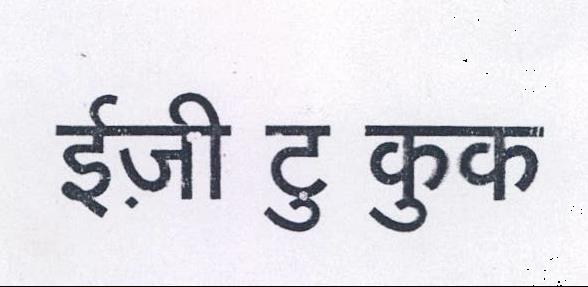 ईज़ी टु कुक